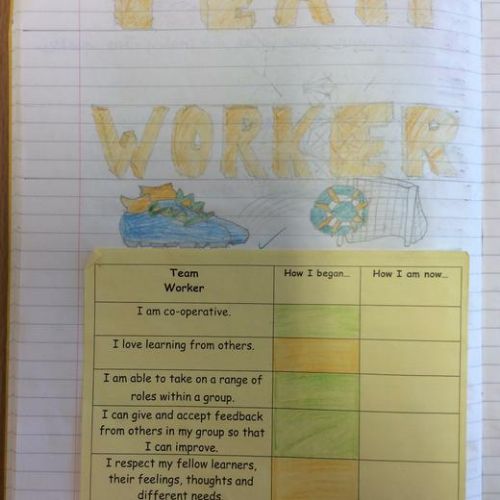 TEAM
WORKER
Team
Worker
How I began...
How I am now...
I am co-operative.
I love learning from others.
I am able to take on a range of
roles within a group.
I can give and accept feedback
from others in my group so that
I can improve.
I respect my fellow learners,
their feelings, thoughts and
different needs